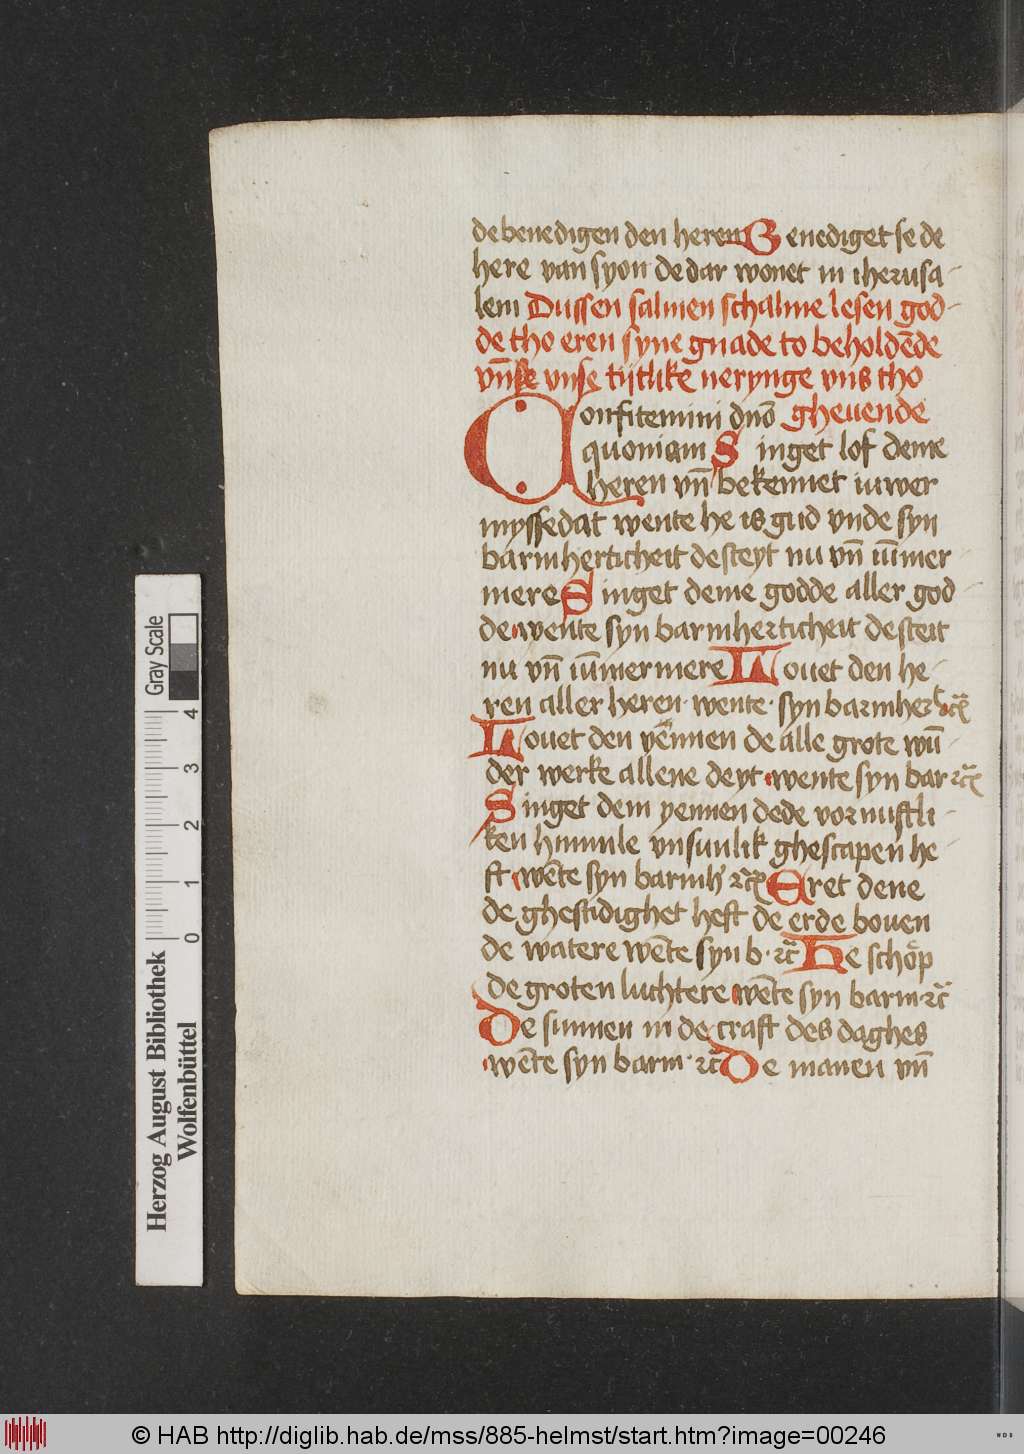 de benedigen den heren Benediget se de
here van syon de dar wonet in iherusa-
lem Dussen salmen schalme lesen god-
de tho eren syne gnade to beholdēde
vn̄se vnse tijtlike nerynge vns tho
Confitemini dn̄o gheuende
quoniam Singet lof deme
heren vn̄ bekennet iuwer
myssedat wente he is gud vnde syn
barmherticheit de steyt nu vn̄ iūmer
mere Singet deme godde aller god-
de wente syn barmherticheit de steit
nu vn̄ iūmermere Louet den he-
ren aller heren wente syn barmhert ꝛc̄
Louet den yēnnen de alle grote wū-
der werke allene deyt wente syn bar ꝛc̄
Singet dem yennen dede vornuftli-
ken hmmle vnsuulik ghescapen he-
ft wēte syn barmh' ꝛc̄ Eret dene
de ghestidighet heft de erde bouen
de watere wēte syn b. ꝛc̄ He schöp
de groten luchtere wēte syn barm ꝛc̄
De sunnen in de craft des daghes
wēte syn barm. ꝛc̄ De manen vn̄
Gray Scale
4 3 2 1 0
Herzog August Bibliothek
Wolfenbüttel
© HAB http://diglib.hab.de/mss/885-helmst/start.htm?image=00246
WDB